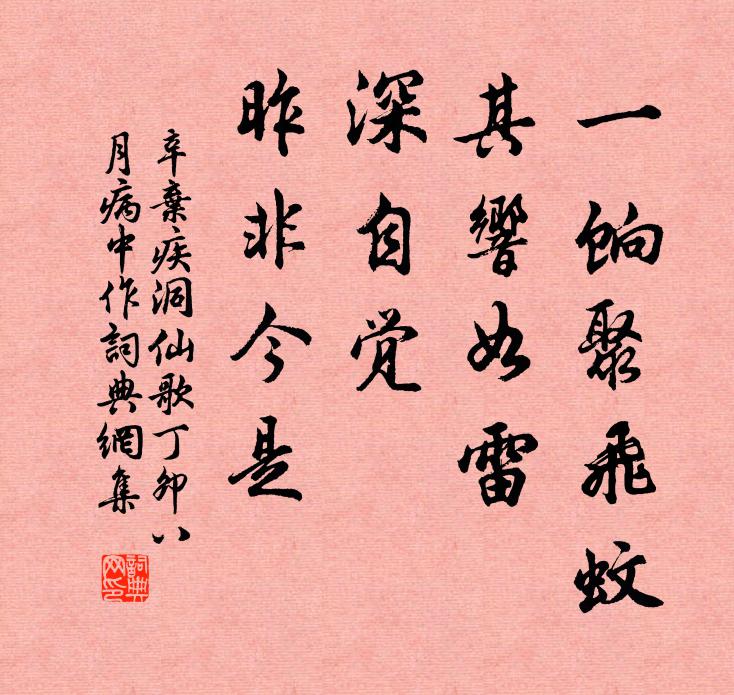 一餉聚飛蚊
其響如雷
深自覚
昨非今是
辛棄疾洞仙歌丁卯八
月病中作詞典網集
詞典
网印